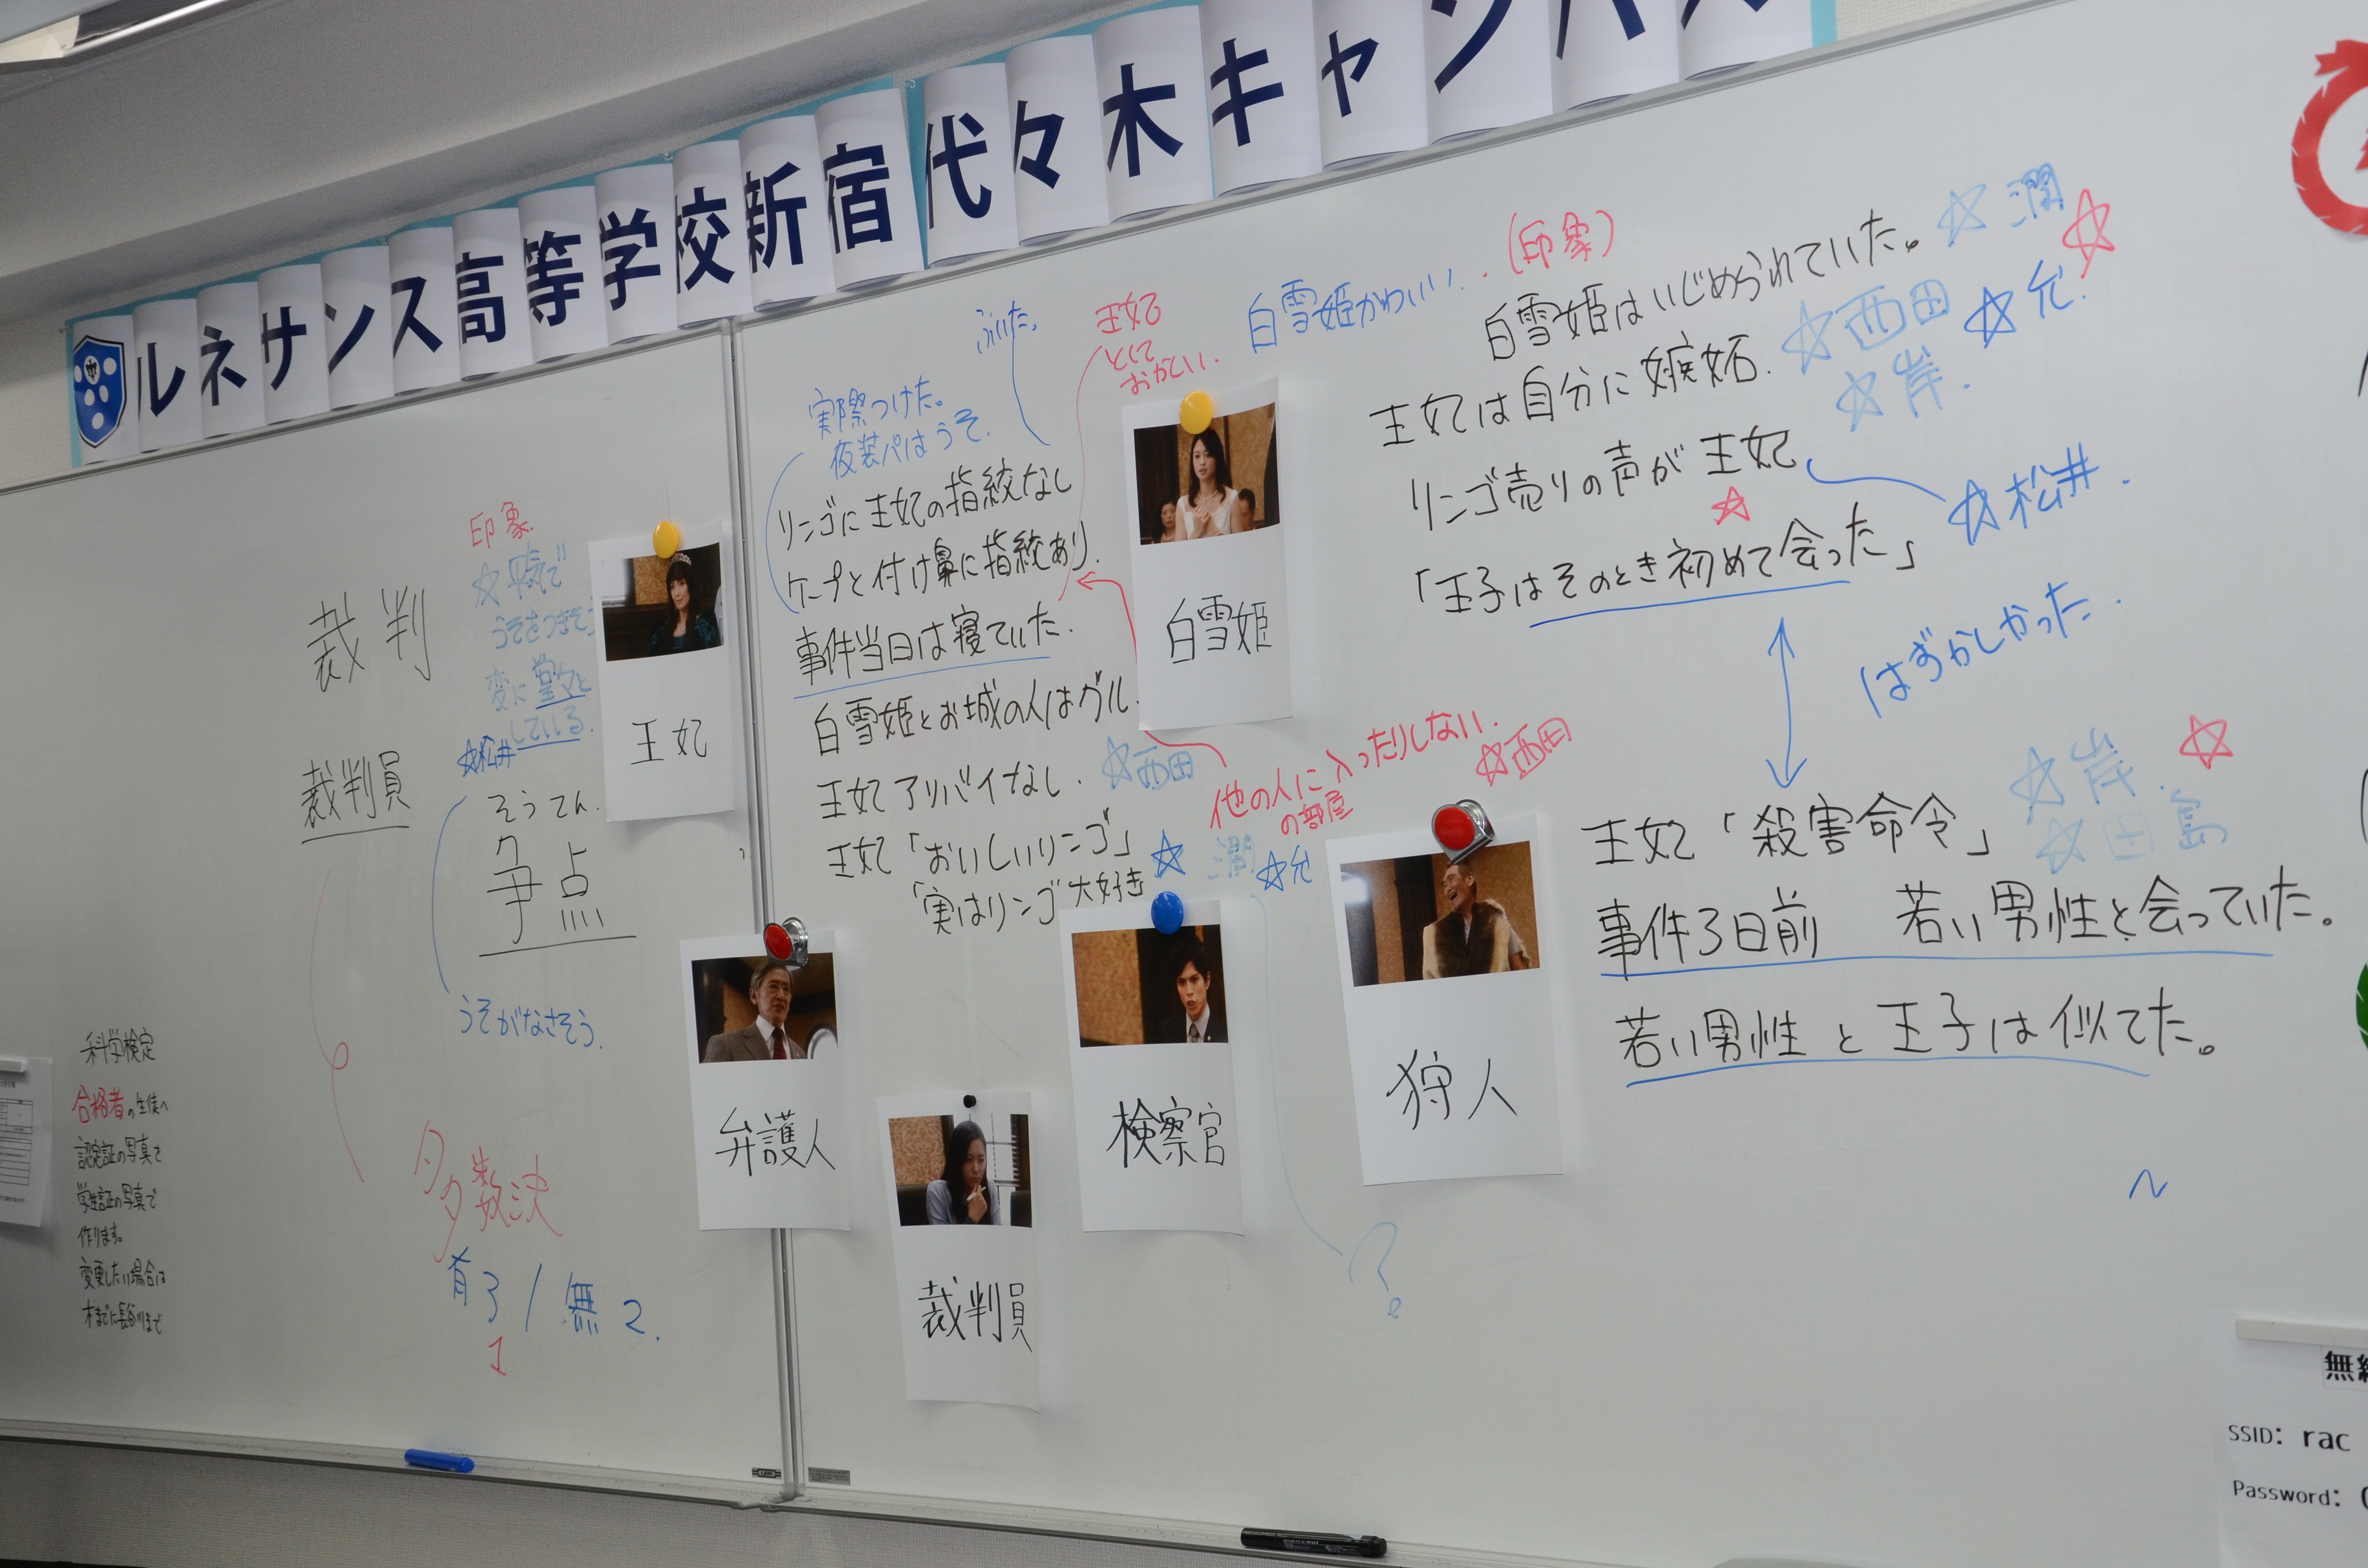 ルネサンス高等学校新宿代々木キャンパス
裁判
裁判員
印象
☆平気で
うそをつきそう
変に堂々と
している.
☆松井
王妃
そうてん.
争点
うそがなさそう.
多数決
有3/無2.
1
科学検定
合格者の生徒へ
認定証の写真を
学生証の写真で
作ります。
変更したい場合は
ふいた。
王妃
として
おかしい.
白雪姫かわいい..(印象)
実際つけた。
夜装パはうそ.
リンゴに王妃の指紋なし
ケープと付け鼻に指紋あり.
事件当日は寝ていた.
白雪姫とお城の人はグル.
王妃アリバイなし.☆西田
王妃「おいしいリンゴ」☆潤☆允
「実はリンゴ大好き
白雪姫
他の人に入ったりしない.☆西田
の部屋
白雪姫はいじめられていた。☆潤☆
王妃は自分に嫉妬.☆西田☆允.
☆岸.
リンゴ売りの声が王妃
☆
☆松井.
「王子はそのとき初めて会った」
はずかしかった.
王妃「殺害命令」☆岸.☆
☆田島
事件3日前 若い男性と会っていた。
若い男性と王子は似てた。
弁護人
裁判員
検察官
狩人
?
SSID: rac
Password: